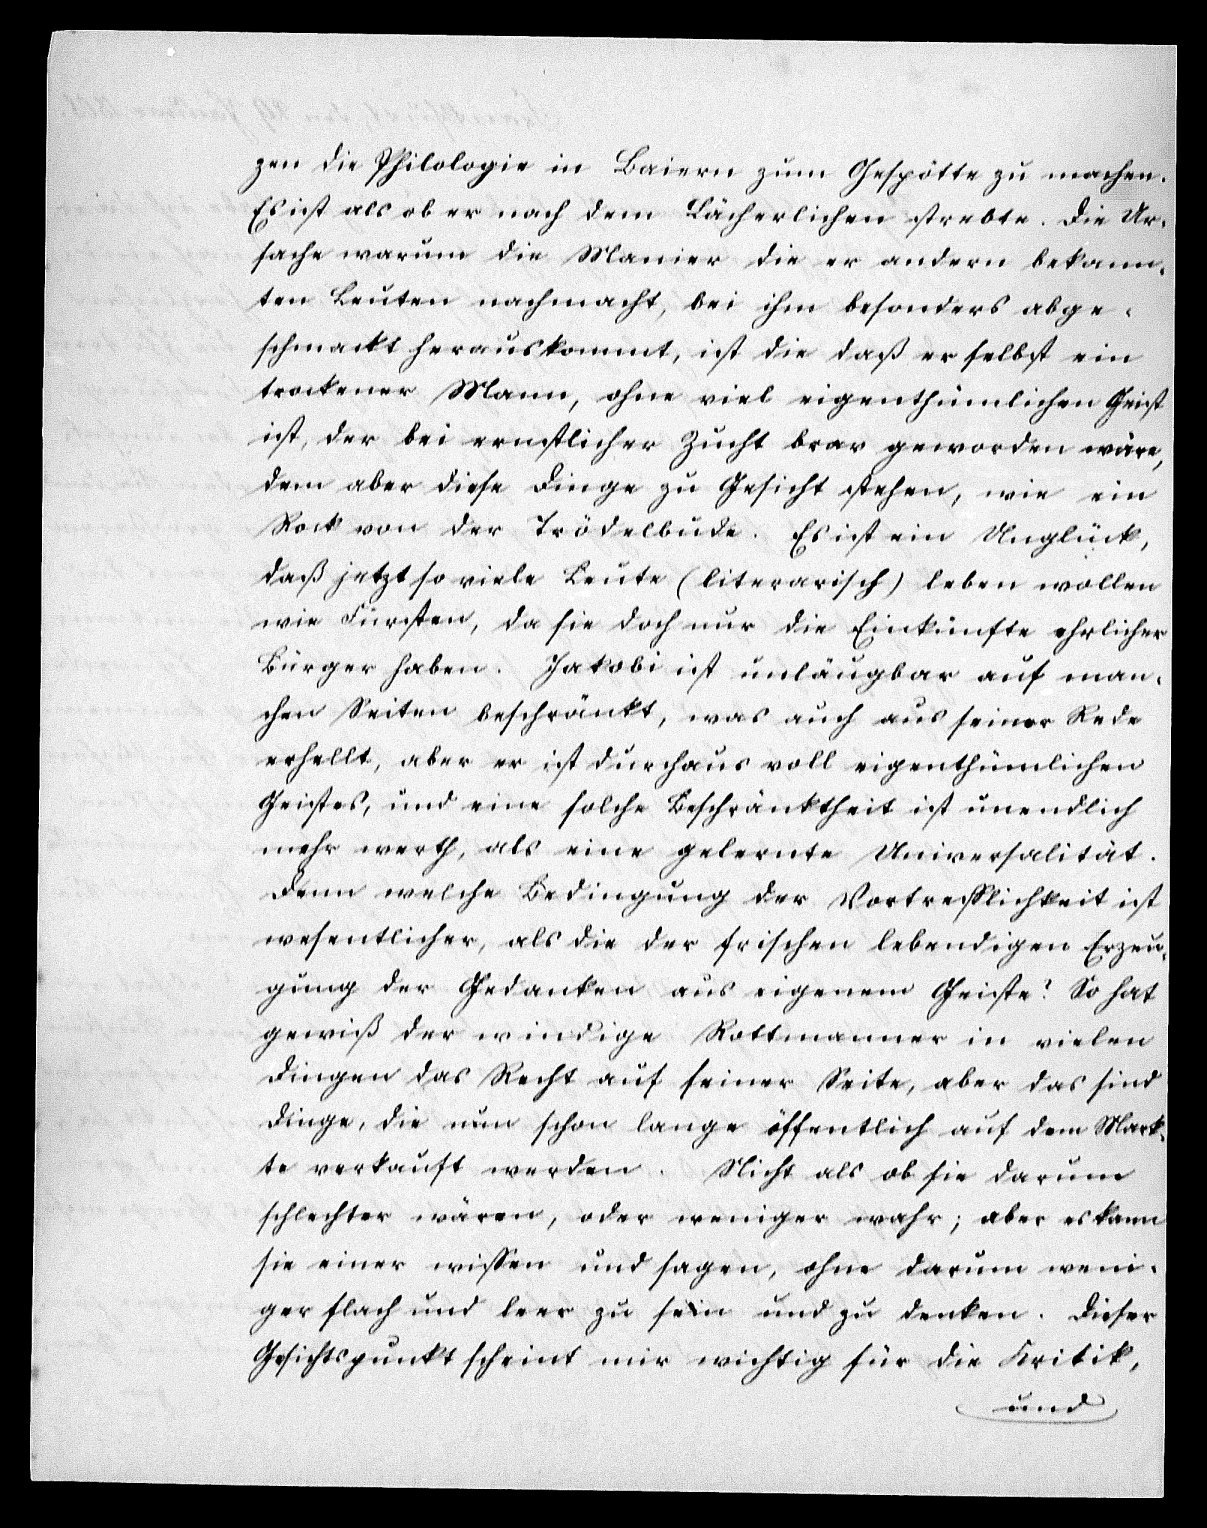 zen die Philologie in Baiern zum Gespötte zu machen.
Es ist als ob er nach dem Lächerlichen strebte. Die Ur-
sache warum die Manier die er andern bekann-
ten Leuten nachmacht, bei ihm besonders abge-
schmackt herauskommt, ist die daß er selbst ein
trockener Mann, ohne viel eigenthümlichen Geist
ist, der bei ernstlicher Zucht brav geworden wäre,
dem aber diese Dinge zu Gesicht stehen, wie ein
Rock von der Trödelbude. Es ist ein Unglück,
daß jetzt so viele Leute (literarisch) leben wollen
wie Fürsten, da sie doch nur die Einkünfte ehrlicher
Bürger haben. Jakobi ist unläugbar auf man-
chen Seiten beschränkt, was auch aus seiner Rede
erhellt, aber er ist durchaus voll eigenthümlichen
Geistes, und eine solche Beschränktheit ist unendlich
mehr werth, als eine gelernte Universalität.
Denn welche Bedingung der Vortrefflichkeit ist
wesentlicher, als die der frischen lebendigen Erzeu-
gung der Gedanken aus eigenem Geiste? So hat
gewiß der windige Rottmanner in vielen
Dingen das Recht auf seiner Seite, aber das sind
Dinge, die nun schon lange öffentlich auf dem Mark-
te verkauft werden. Nicht als ob sie darum
schlechter wären, oder weniger wahr; aber es kann
sie einer wissen und sagen, ohne darum weni-
ger flach und leer zu sein und zu denken. Dieser
Gesichtspunkt scheint mir wichtig für die Kritik,
und